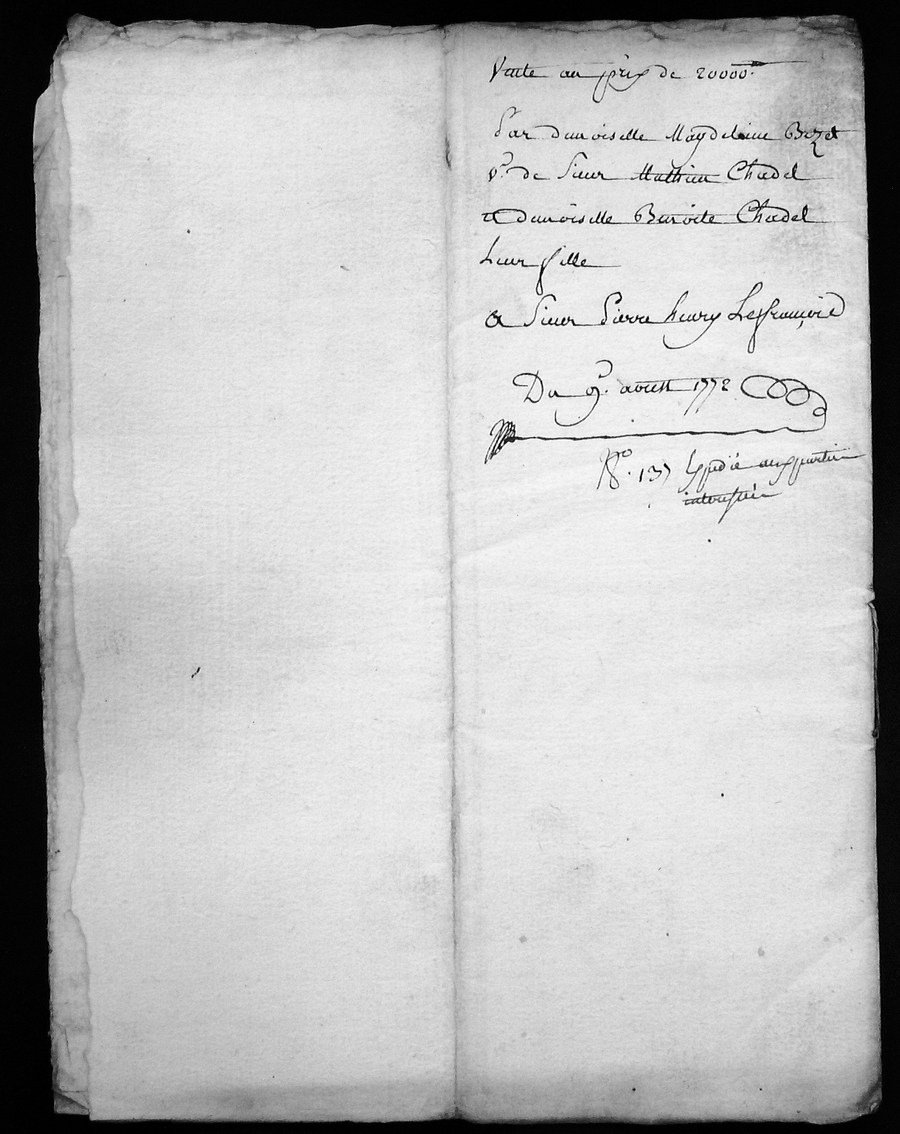 Vente au prix de 20000.#
Par demoiselle Magdeleine Bozet
Ve. de Sieur Mathieu Chadel
et demoiselle Benoite Chadel
leur fille
a Sieur Pierre henry Lefrançois
Du 9e. aoust 1772
No. 137 Expedié aux parties
interessées